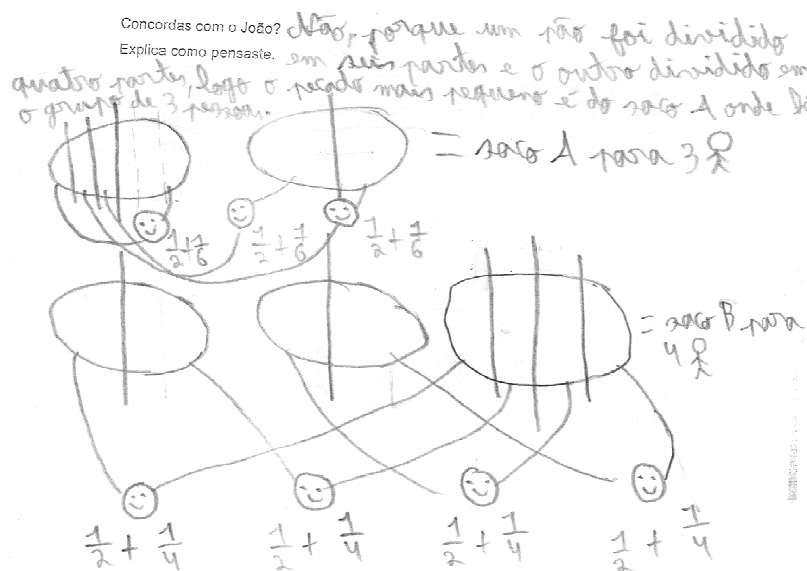 Concordas com o João? Não, porque um pão foi dividido
Explica como pensaste. em seis partes e o outro dividido em
quatro partes, logo o pedaço mais pequeno é do saco A onde
o grupo de 3 pessoas.
= saco A para 3
1/2 + 1/6 1/2 + 1/6 1/2 + 1/6
= saco B para
4
1/2 + 1/4 1/2 + 1/4 1/2 + 1/4 1/2 + 1/4